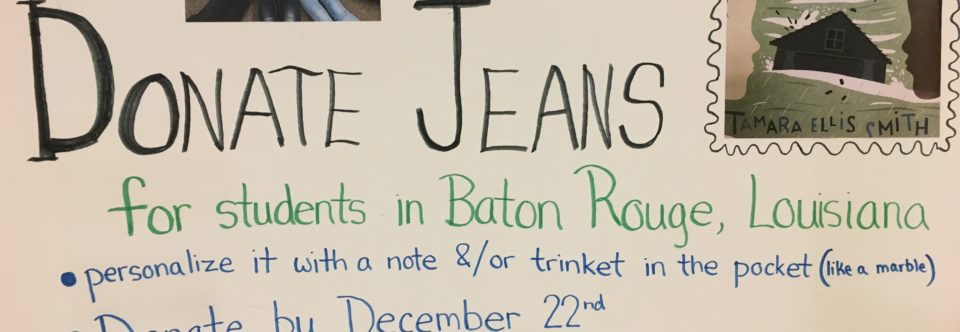 DONATE JEANS
TAMARA ELLIS SMITH
for students in Baton Rouge, Louisiana
• personalize it with a note &/or trinket in the pocket (like a marble)
• Donate by December 22nd